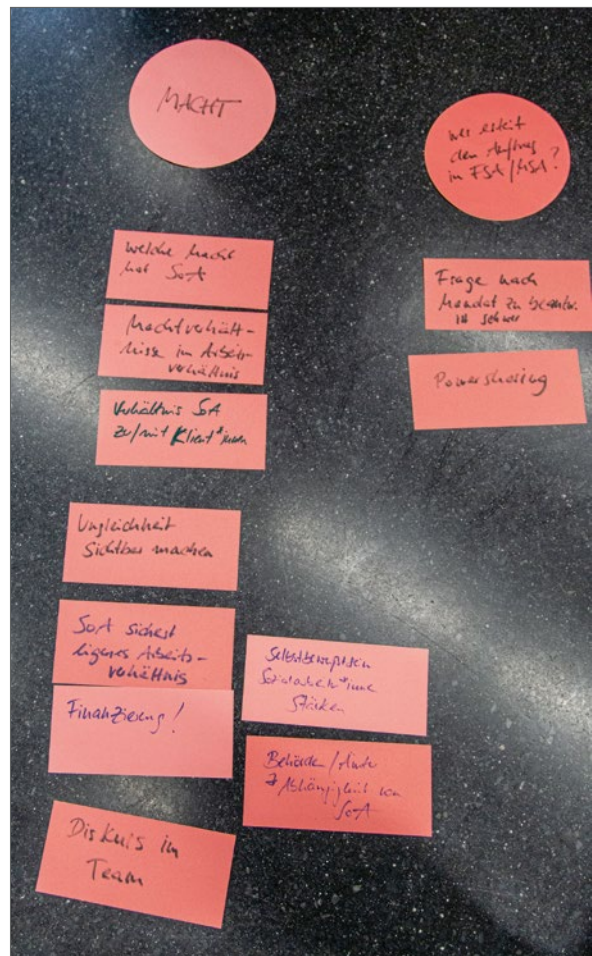 MACHT
welche Macht
hat SoA
Machtverhält-
nisse im Arbeits-
verhältnis
Verhältnis SoA
zu/mit Klient*innen
Ungleichheit
Sichtbar machen
SoA sichert
eigenes Arbeits-
verhältnis
Finanzierung!
Diskurs im
Team
Selbstbewusstsein
Sozialarbeiter*innen
Stärken
Behörden/Ämter
Abhängigkeit von
SoA
Wer erteilt
den Auftrag
in FSA/MSA?
Frage nach
Mandat zu beantw.
ist schwer
Powersharing